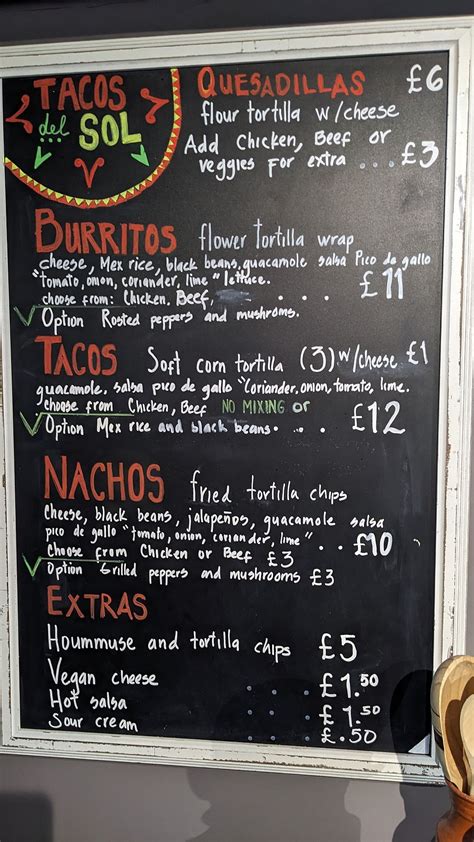 TACOS
del
SOL
QUESADILLAS £6
flour tortilla w/cheese
Add Chicken, Beef or
veggies For extra ... £3
BURRITOS flower tortilla wrap
cheese, Mex rice, black beans, guacamole salsa Pico de gallo
"tomato, onion, coriander, lime" lettuce.
choose from: Chicken, Beef, . . . £11
√ Option Rosted peppers and mushroms.
TACOS Soft corn tortilla (3) w/cheese £1
guacamole. salsa pico de gallo "Coriander, onion, tomato, lime.
choose from Chicken, Beef NO MIXING or
√ Option Mex rice and black beans. . . £12
NACHOS fried tortilla chips
Cheese, black beans, jalapeños, guacamole salsa
pico de gallo "tomato, onion, coriander, lime" . . £10
Choose from Chicken or Beef £3
√ Option Grilled peppers and mushrooms £3
EXTRAS
Hoummuse and tortilla chips £5
Vegan cheese . . . £1.50
Hot salsa . . . £1.50
Sour cream . . . £.50